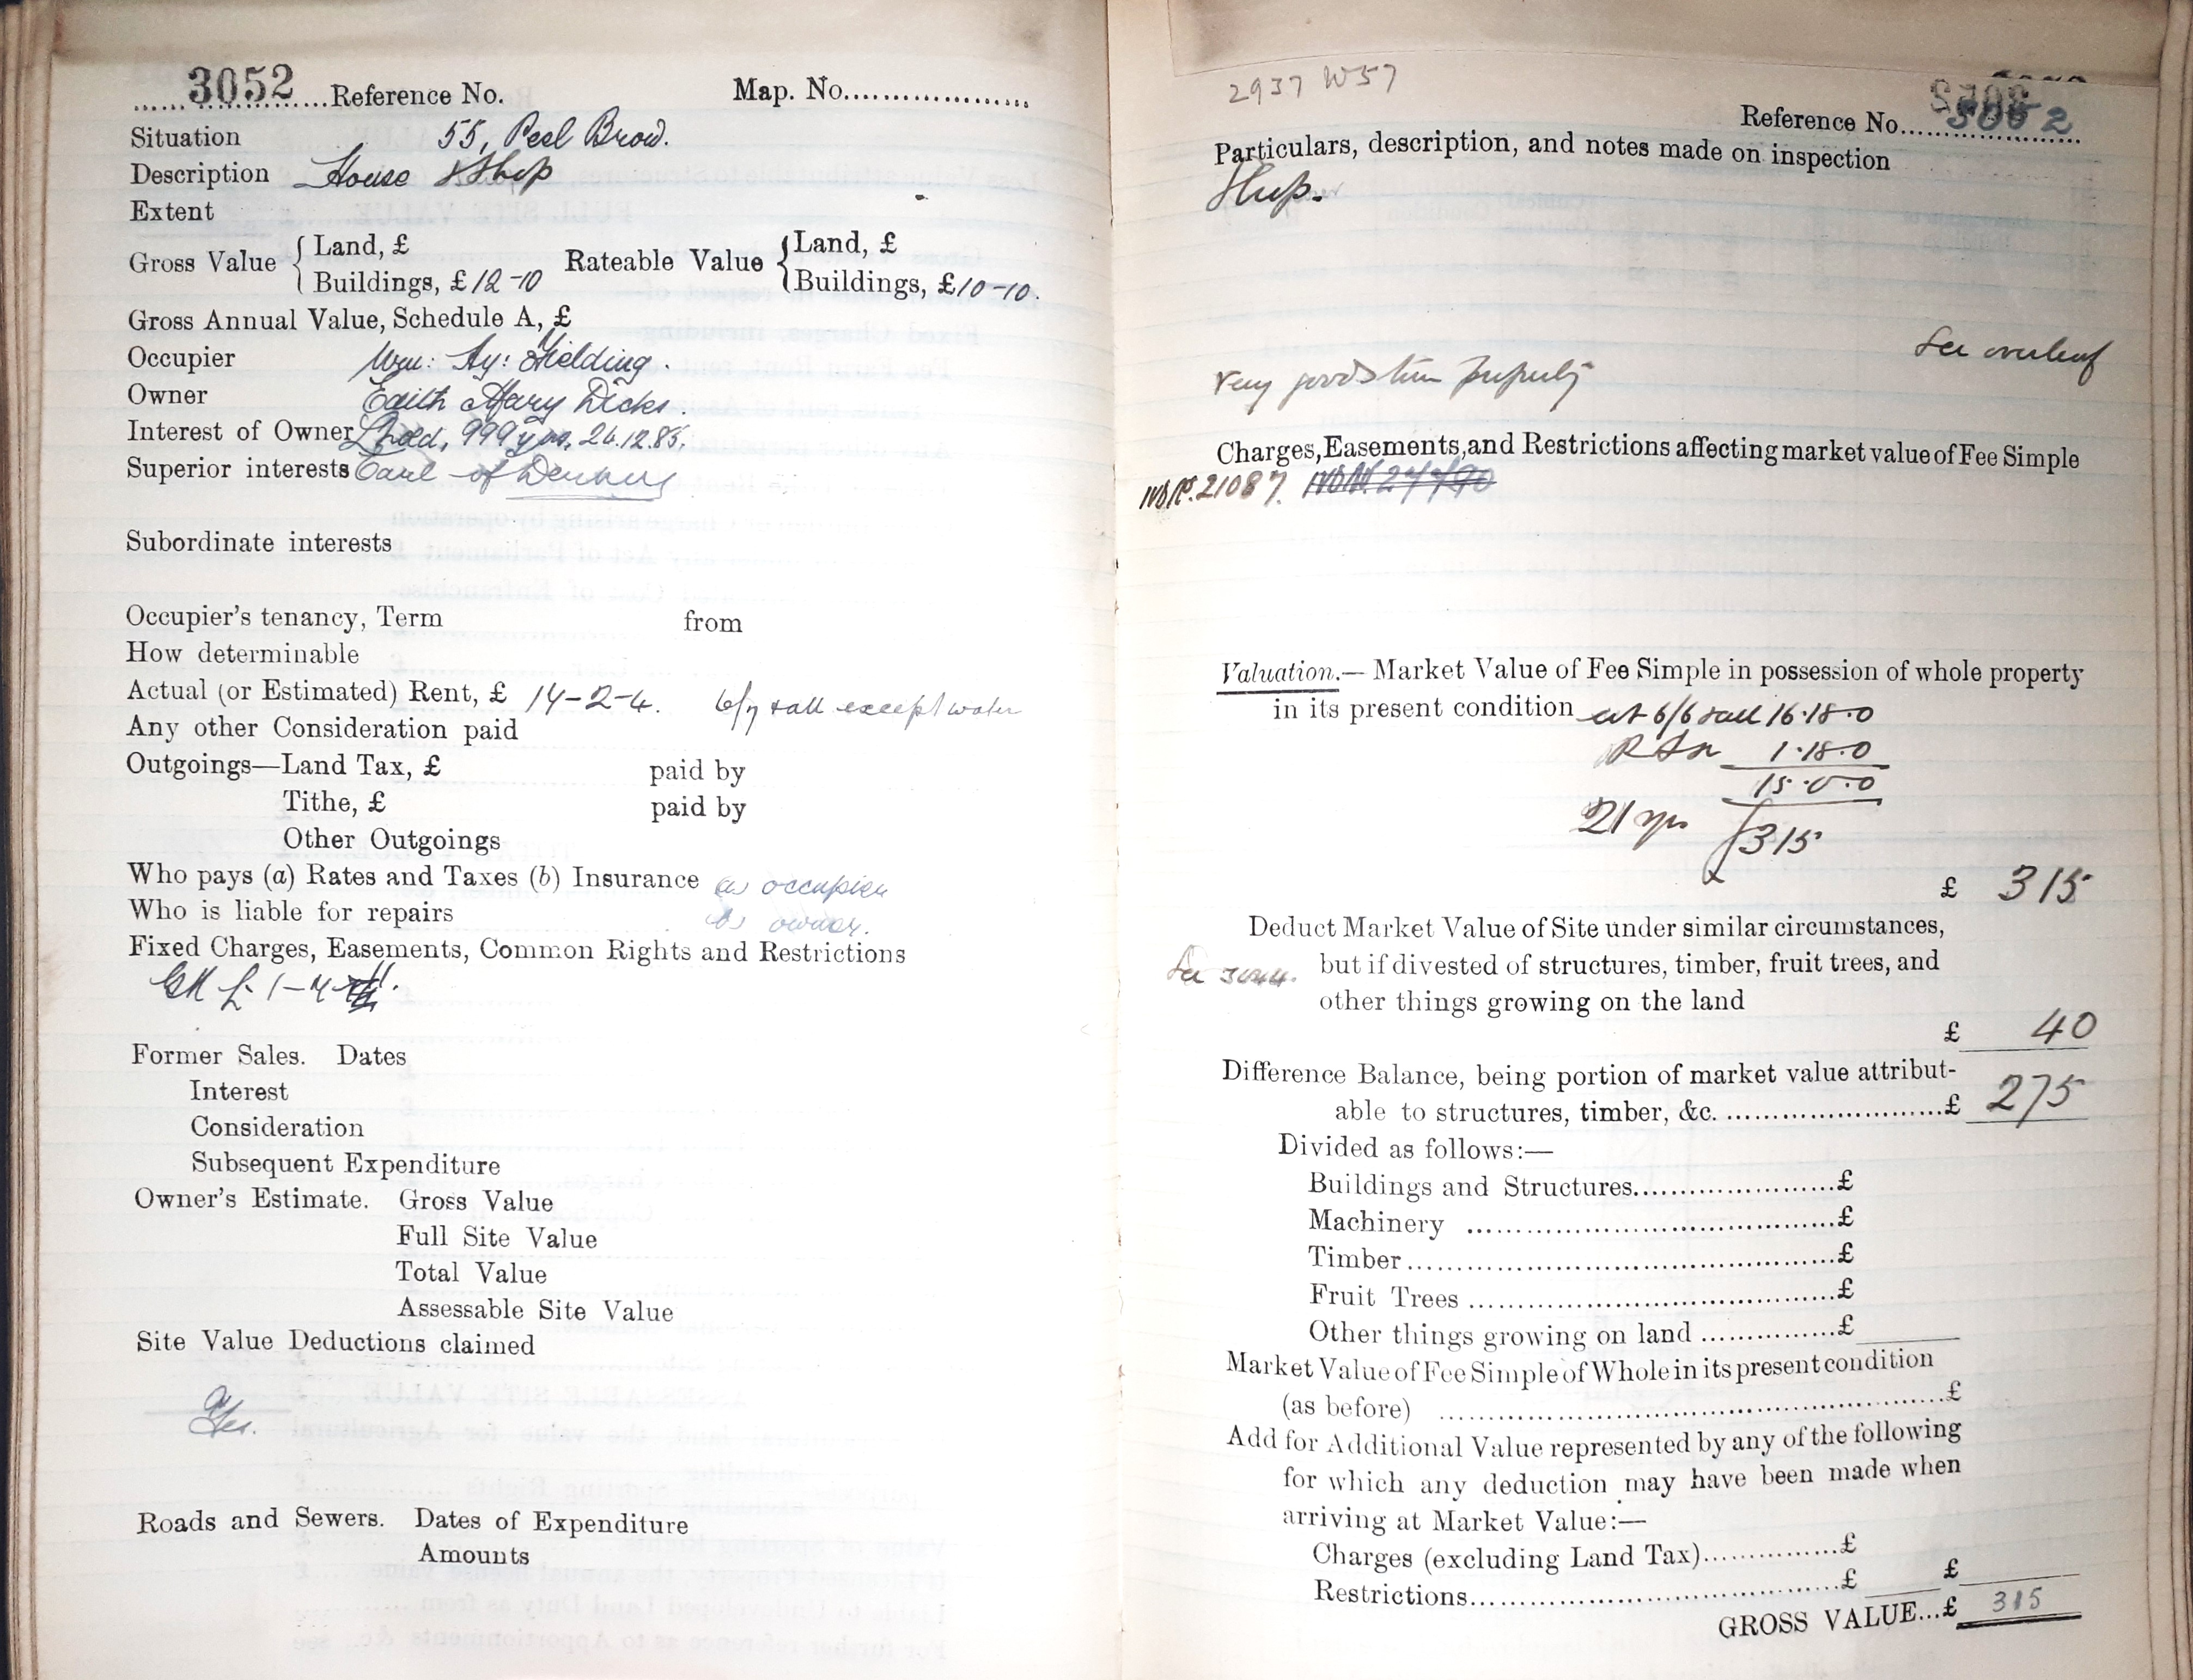 3052 Reference No. Map. No.
Situation 55, Peel Brow.
Description House & Shop
Extent
Gross Value { Land, £ Rateable Value { Land, £
Buildings, £ 12-10 Buildings, £ 10-10.
Gross Annual Value, Schedule A, £
Occupier Wm: Hy: Fielding.
Owner Edith Mary Dicks.
Interest of Owner Lhold, 999 yrs, 26.12.85.
Superior interests Earl of
Subordinate interests
Occupier's tenancy, Term from
How determinable
Actual (or Estimated) Rent, £ 14-2-4. except water
Any other Consideration paid
Outgoings—Land Tax, £ paid by
Tithe, £ paid by
Other Outgoings
Who pays (a) Rates and Taxes (b) Insurance (a) occupier
Who is liable for repairs (b) owner.
Fixed Charges, Easements, Common Rights and Restrictions
£ 1-4
Former Sales. Dates
Interest
Consideration
Subsequent Expenditure
Owner's Estimate. Gross Value
Full Site Value
Total Value
Assessable Site Value
Site Value Deductions claimed
Yes.
Roads and Sewers. Dates of Expenditure
Amounts
2937 W57
Reference No. 3052
Particulars, description, and notes made on inspection
Shop.
See overleaf
very good property
Charges, Easements, and Restrictions affecting market value of Fee Simple
21087.
Valuation.— Market Value of Fee Simple in possession of whole property
in its present condition at 6/6 16.18.0
1.18.0
15.0.0
21 yrs £315
£ 315
Deduct Market Value of Site under similar circumstances,
See 3044. but if divested of structures, timber, fruit trees, and
other things growing on the land
£ 40
Difference Balance, being portion of market value attribut-
able to structures, timber, &c. £ 275
Divided as follows:—
Buildings and Structures £
Machinery £
Timber £
Fruit Trees £
Other things growing on land £
Market Value of Fee Simple of Whole in its present condition
(as before) £
Add for Additional Value represented by any of the following
for which any deduction may have been made when
arriving at Market Value:—
Charges (excluding Land Tax) £
Restrictions £ £
GROSS VALUE...£ 315